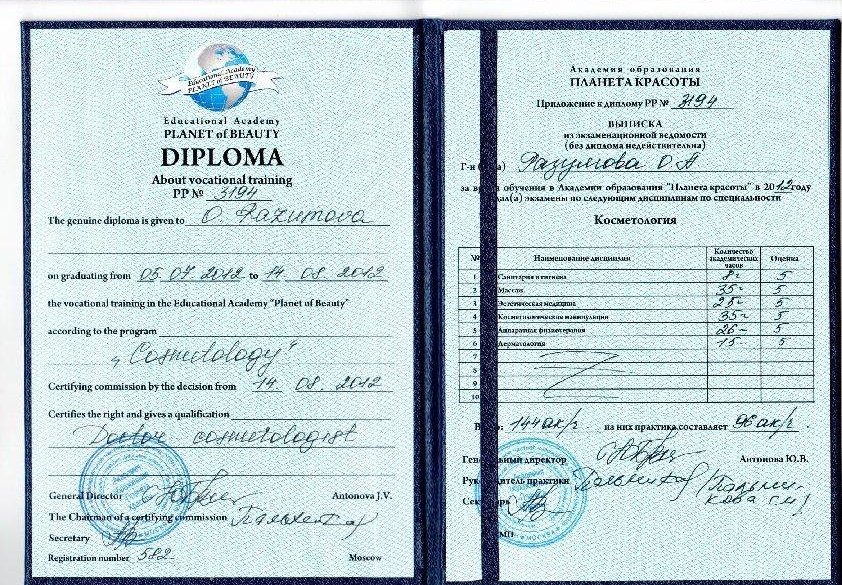 Educational Academy
PLANET of BEAUTY
Educational Academy
PLANET of BEAUTY
DIPLOMA
About vocational training
РР № 3194
The genuine diploma is given to O. Razumova
on graduating from 05 07 2012 to 14 08. 2012
the vocational training in the Educational Academy "Planet of Beauty"
according to the program
„Cosmetology"
Certifying commission by the decision from 14. 08. 2012
Certifies the right and gives a qualification
Doctor cosmetologist
General Director Antonova J.V.
The Chairman of a certifying commission
Secretary
Registration number 582 Moscow
Академия образования
ПЛАНЕТА КРАСОТЫ
Приложение к диплому РР № 3194
ВЫПИСКА
из экзаменационной ведомости
(без диплома недействительна)
Г-н а) Разумова О А
за вр обучения в Академии образования "Планета красоты" в 2012 году
дал(а) экзамены по следующим дисциплинам по специальности
Косметология
№ Наименование дисциплин Количество академических часов Оценка
1 Санитария и гигиена 8 ч 5
2 Массаж 35 ч 5
3 Эстетическая медицина 25 ч 5
4 Косметологические манипуляции 35 ч 5
5 Аппаратная физиотерапия 26 5
6 Дерматология 15 5
7
8
9
10
В : 144 ак/г из них практика составляет 96 ак/г
Гене ный директор Антонова Ю.В.
Руко дитель практики
Сек арь
МП